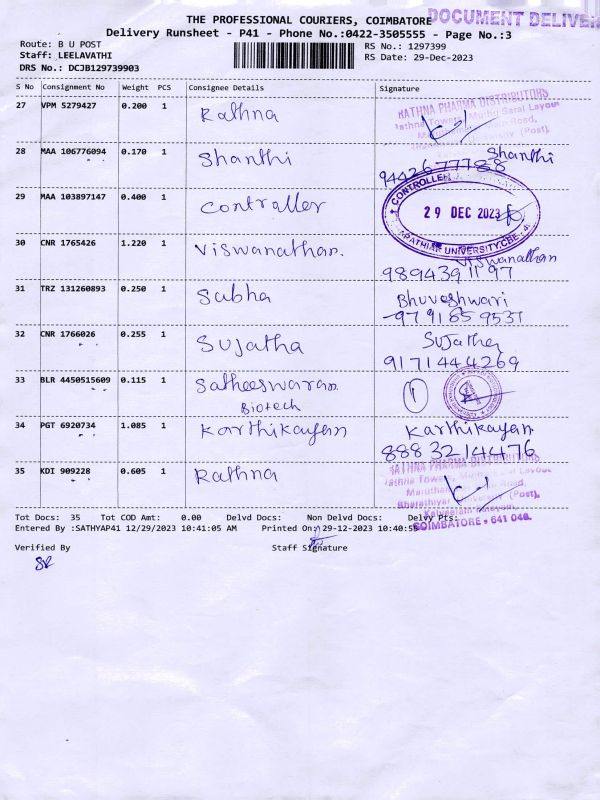 THE PROFESSIONAL COURIERS, COIMBATORE
DOCUMENT DELIVER
Delivery Runsheet - P41 - Phone No.:0422-3505555 - Page No.:3
Route: B U POST
RS No.: 1297399
Staff: LEELAVATHI
RS Date: 29-Dec-2023
DRS No.: DCJB129739903
S No Consignment No Weight PCS Consignee Details Signature
27 VPM 5279427 0.200 1 Rathna
RATHNA PHARMA DISTRIBUTORS
28 MAA 106776094 0.170 1 Shanthi Shanthi
9442677788
29 MAA 103897147 0.400 1 Controller
CONTROLLER
29 DEC 2023
UNIVERSITY, CBE
30 CNR 1765426 1.220 1 Viswanathan. Viswanathan
9894391197
31 TRZ 131260893 0.250 1 Subha Bhuveshwari
9791859537
32 CNR 1766026 0.255 1 Sujatha Sujatha
9171444269
33 BLR 4450515609 0.115 1 Satheeswaran 1
Biotech
34 PGT 6920734 1.085 1 Karthikayan Karthikayan
8883214476
35 KDI 909228 0.605 1 Rathna
RATHNA PHARMA DISTRIBUTORS
Maruthamalai Road,
Bharathiyar University (Post),
COIMBATORE - 641 046.
Tot Docs: 35 Tot COD Amt: 0.00 Delvd Docs: Non Delvd Docs: Delvy Pts:
Entered By :SATHYAP41 12/29/2023 10:41:05 AM Printed On: 29-12-2023 10:40:55
Verified By Staff Signature